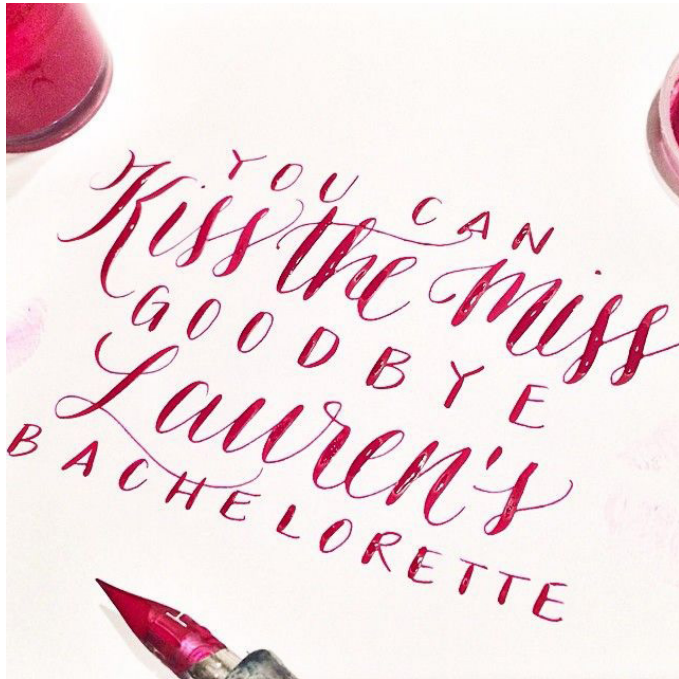 YOU CAN
Kiss the miss
GOODBYE
Lauren's
BACHELORETTE
H